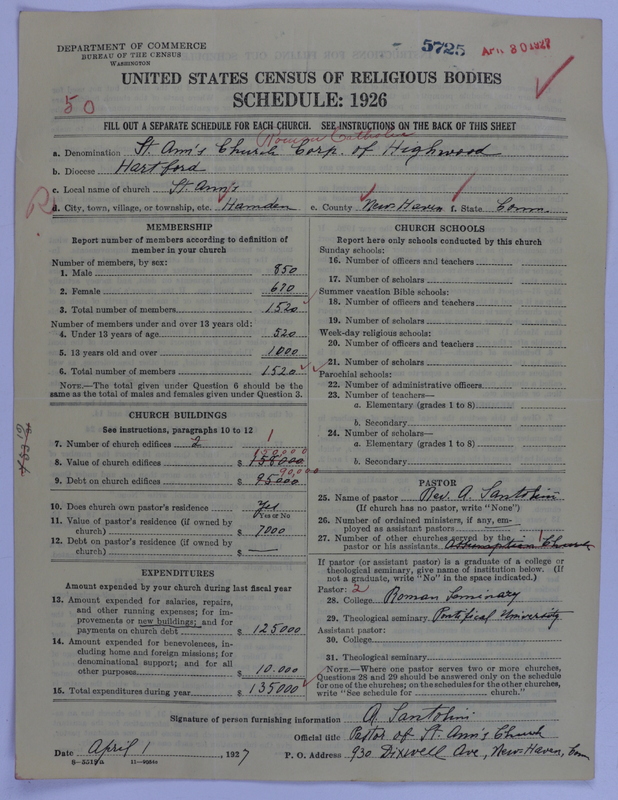 DEPARTMENT OF COMMERCE
BUREAU OF THE CENSUS
WASHINGTON
5725 APR 30 1927
UNITED STATES CENSUS OF RELIGIOUS BODIES
50
SCHEDULE: 1926
FILL OUT A SEPARATE SCHEDULE FOR EACH CHURCH. SEE INSTRUCTIONS ON THE BACK OF THIS SHEET
Roman Catholic
a. Denomination St. Ann's Church Corp. of Highwood
b. Diocese Hartford
c. Local name of church St. Ann's
d. City, town, village, or township, etc. Hamden e. County New Haven f. State Conn.
MEMBERSHIP
Report number of members according to definition of
member in your church
Number of members, by sex:
1. Male 850
2. Female 670
3. Total number of members 1520
Number of members under and over 13 years old:
4. Under 13 years of age 520
5. 13 years old and over 1000
6. Total number of members 1520
NOTE.—The total given under Question 6 should be the
same as the total of males and females given under Question 3.
CHURCH BUILDINGS
See instructions, paragraphs 10 to 12
7. Number of church edifices 2 1
150,000
8. Value of church edifices $ 158000
90,000
9. Debt on church edifices $ 95000
10. Does church own pastor's residence Yes
Yes or No
11. Value of pastor's residence (if owned by
church) $ 7000
12. Debt on pastor's residence (if owned by
church) $ —
EXPENDITURES
Amount expended by your church during last fiscal year
13. Amount expended for salaries, repairs,
and other running expenses; for im-
provements or new buildings; and for
payments on church debt $ 125000
14. Amount expended for benevolences, in-
cluding home and foreign missions; for
denominational support; and for all
other purposes $ 10.000
15. Total expenditures during year $ 135000
CHURCH SCHOOLS
Report here only schools conducted by this church
Sunday schools:
16. Number of officers and teachers
17. Number of scholars
Summer vacation Bible schools:
18. Number of officers and teachers
19. Number of scholars
Week-day religious schools:
20. Number of officers and teachers
21. Number of scholars
Parochial schools:
22. Number of administrative officers
23. Number of teachers—
a. Elementary (grades 1 to 8)
b. Secondary
24. Number of scholars—
a. Elementary (grades 1 to 8)
b. Secondary
PASTOR
25. Name of pastor Rev. A. Santolini
(If church has no pastor, write "None")
26. Number of ordained ministers, if any, em-
ployed as assistant pastors
27. Number of other churches served by the 1
pastor or his assistants Assumption Church
If pastor (or assistant pastor) is a graduate of a college or
theological seminary, give name of institution below. (If
not a graduate, write "No" in the space indicated.)
Pastor: 2
28. College Roman Seminary
29. Theological seminary Pontifical University
Assistant pastor:
30. College
31. Theological seminary
NOTE.—Where one pastor serves two or more churches,
Questions 28 and 29 should be answered only on the schedule
for one of the churches; on the schedules for the other churches,
write "See schedule for church."
Signature of person furnishing information A. Santolini
Official title Pastor of St. Ann's Church
Date April 1, 1927 P. O. Address 930 Dixwell Ave, New Haven, Conn